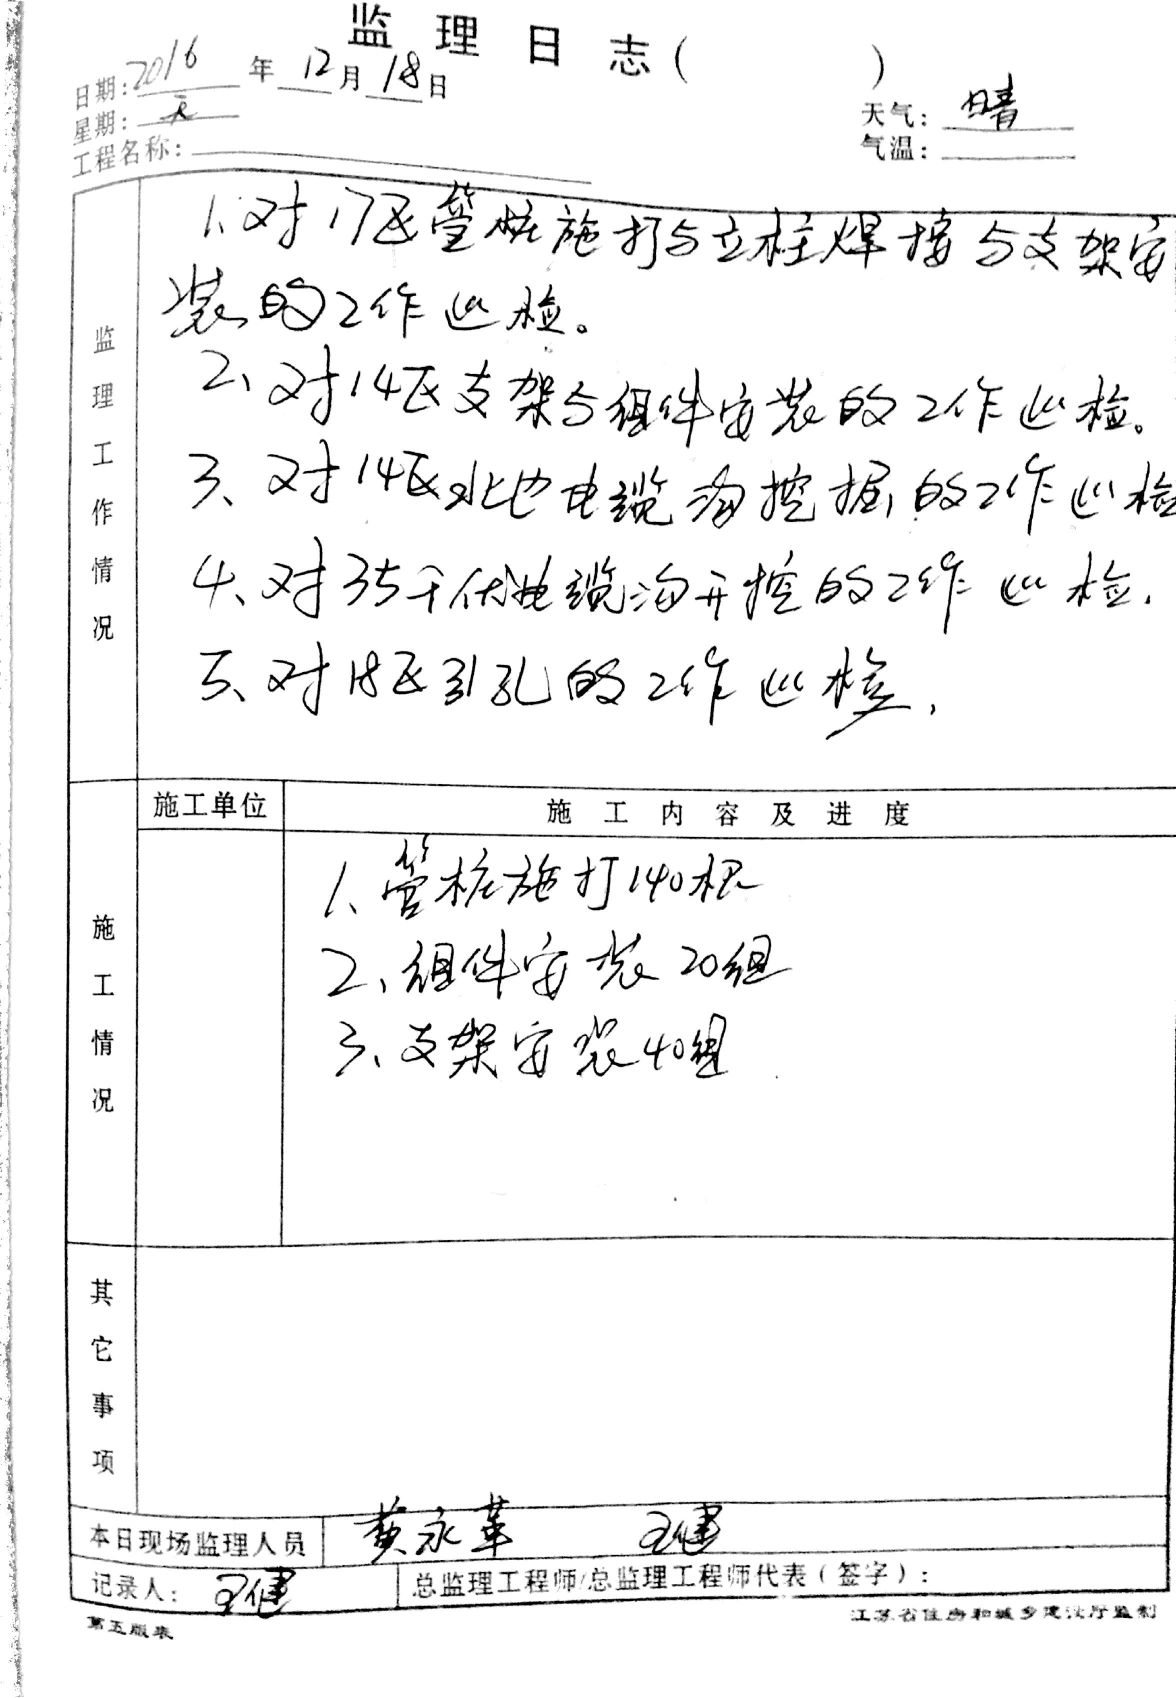 监理日志(　　　)
日期:2016年12月18日
星期:天
天气:晴
工程名称:
气温:
监理工作情况
1.对17区管桩施打与立柱焊接与支架安
装的工作巡检。
2、对14区支架与组件安装的工作巡检。
3、对14区北边电缆沟挖掘的工作巡检
4、对35千伏电缆沟开挖的工作巡检.
5、对18区引孔的工作巡检.
施工单位
施工内容及进度
施工情况
1、管桩施打140根
2、组件安装20组
3、支架安装40组
其它事项
本日现场监理人员 黄永革 王健
记录人:王健
总监理工程师/总监理工程师代表(签字):
第五版表
江苏省住房和城乡建设厅监制